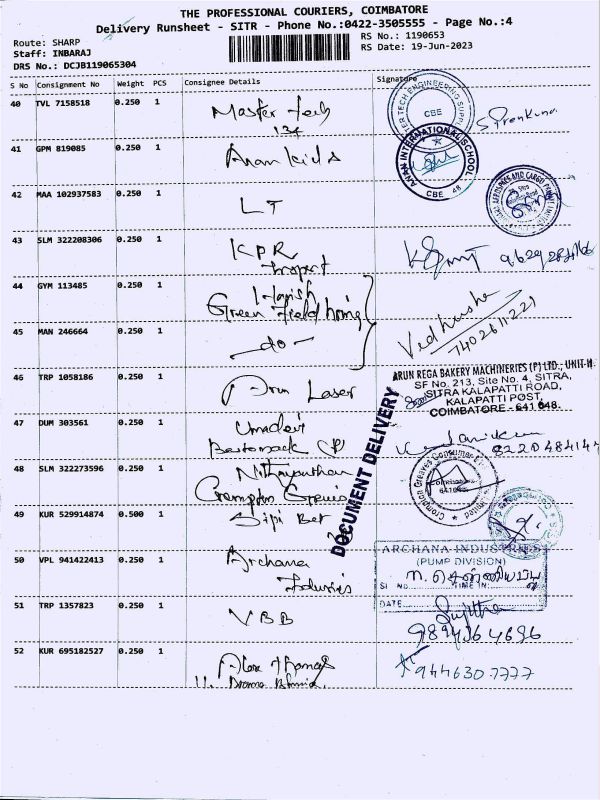 THE PROFESSIONAL COURIERS, COIMBATORE
Delivery Runsheet - SITR - Phone No.:0422-3505555 - Page No.:4
Route: SHARP
Staff: INBARAJ
DRS No.: DCJB119065304
RS No.: 1190653
RS Date: 19-Jun-2023
S No Consignment No Weight PCS Consignee Details Signature
40 TVL 7158518 0.250 1 Master Tech
134
41 GPM 819085 0.250 1 Anan kids
ANAN INTERNATIONAL SCHOOL
CBE 48
42 MAA 102937583 0.250 1 LT
43 SLM 322208306 0.250 1 KPR
44 GYM 113485 0.250 1 Harish
Green field
45 MAN 246664 0.250 1 -do-
Vedhusha
7402611221
46 TRP 1058186 0.250 1 Arun Laser
ARUN REGA BAKERY MACHINERIES (P) LTD.; UNIT-II
SF No. 213, Site No. 4, SITRA,
SITRA KALAPATTI ROAD,
KALAPATTI POST,
COIMBATORE - 641 048.
DOCUMENT DELIVERY
47 DUM 303561 0.250 1 Umadevi
8220484147
48 SLM 322273596 0.250 1 Nithyananthan
Crompton Greaves
49 KUR 529914874 0.500 1 Sipi Bet
50 VPL 941422413 0.250 1 Archana
ARCHANA INDUSTRIES
(PUMP DIVISION)
SI NO. TIME IN
DATE
51 TRP 1357823 0.250 1 VBB
Sujitha
9894364696
52 KUR 695182527 0.250 1 Alex Thomas
9446307777